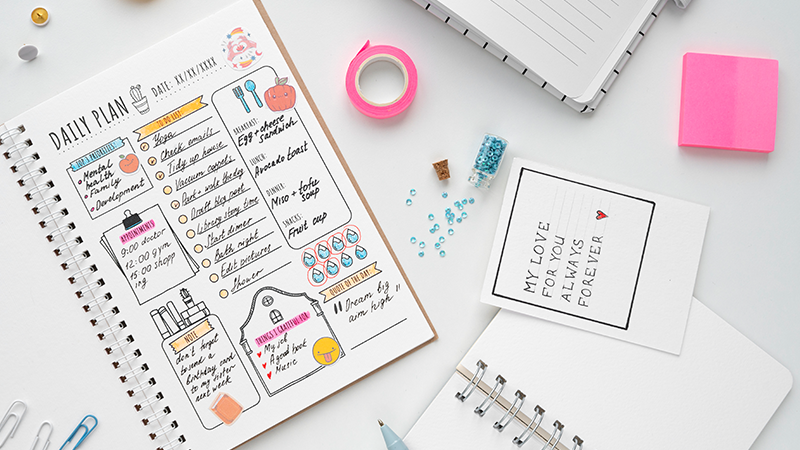 DAILY PLAN
DATE: XX/XX/XXXX
TOP 3 PRIORITIES:
Mental
health
Family
Development
APPOINTMENTS
9:00 doctor
12:00 gym
15:00 shopp
ing
NOTE
don't forget
to send a
birthday card
to my sister
next week
TO DO LIST:
Yoga
Check emails
Tidy up house
Vacuum carpets
Draft blog post
Library story time
Start dinner
Bath night
Edit pictures
Shower
THINGS I GRATEFUL FOR
My job
A good book
Music
BREAKFAST:
Egg + cheese
sandwich
LUNCH:
Avocado toast
DINNER:
Miso + tofu
soup
SNACKS:
Fruit cup
QUOTE OF THE DAY
"Dream big
aim high"
MY LOVE
FOR YOU
ALWAYS
FOREVER